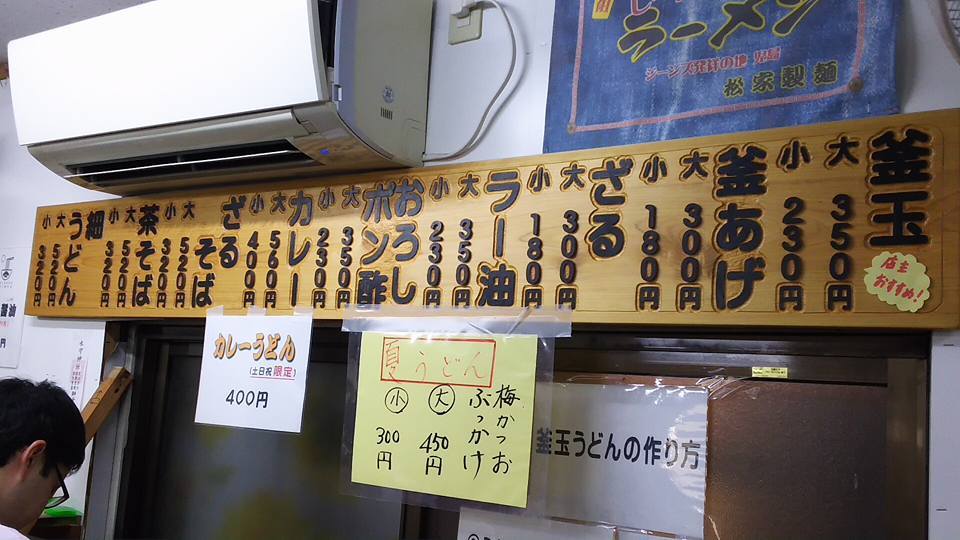 ラーメン
ジーンズ発祥の地 児島
松家製麺
釜玉
大 350円
小 230円
店主おすすめ!
釜あげ
大 300円
小 180円
ざる
大 300円
小 180円
ラー油
大 350円
小 230円
おろし
ポン酢
大 350円
小 230円
カレー
大 560円
小 400円
ざる
そば
大 520円
小 320円
茶そば
大 520円
小 320円
細
うどん
大 520円
小 320円
カレーうどん
(土日祝限定)
400円
夏うどん
梅かつお
ぶっかけ
大 450円
小 300円
釜玉うどんの作り方
醤油
円